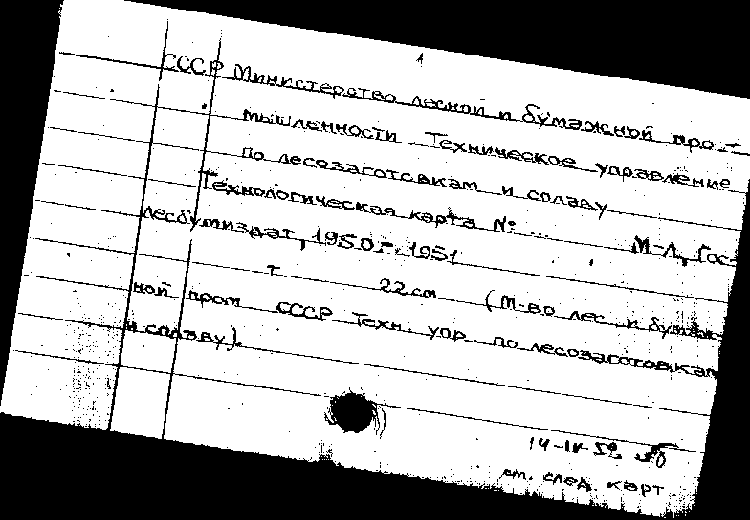 1
СССР Министерство лесной и бумажной про-
мышленности Техническое управление
по лесозаготовкам и сплаву
Технологическая карта №... М-Л, Гос-
лесбумиздат, 1950г-1951
т 22 см (М-во лес. и бумаж-
ной пром СССР Техн. упр по лесозаготовкам
и сплаву).
14-IV-52
см. след. карт